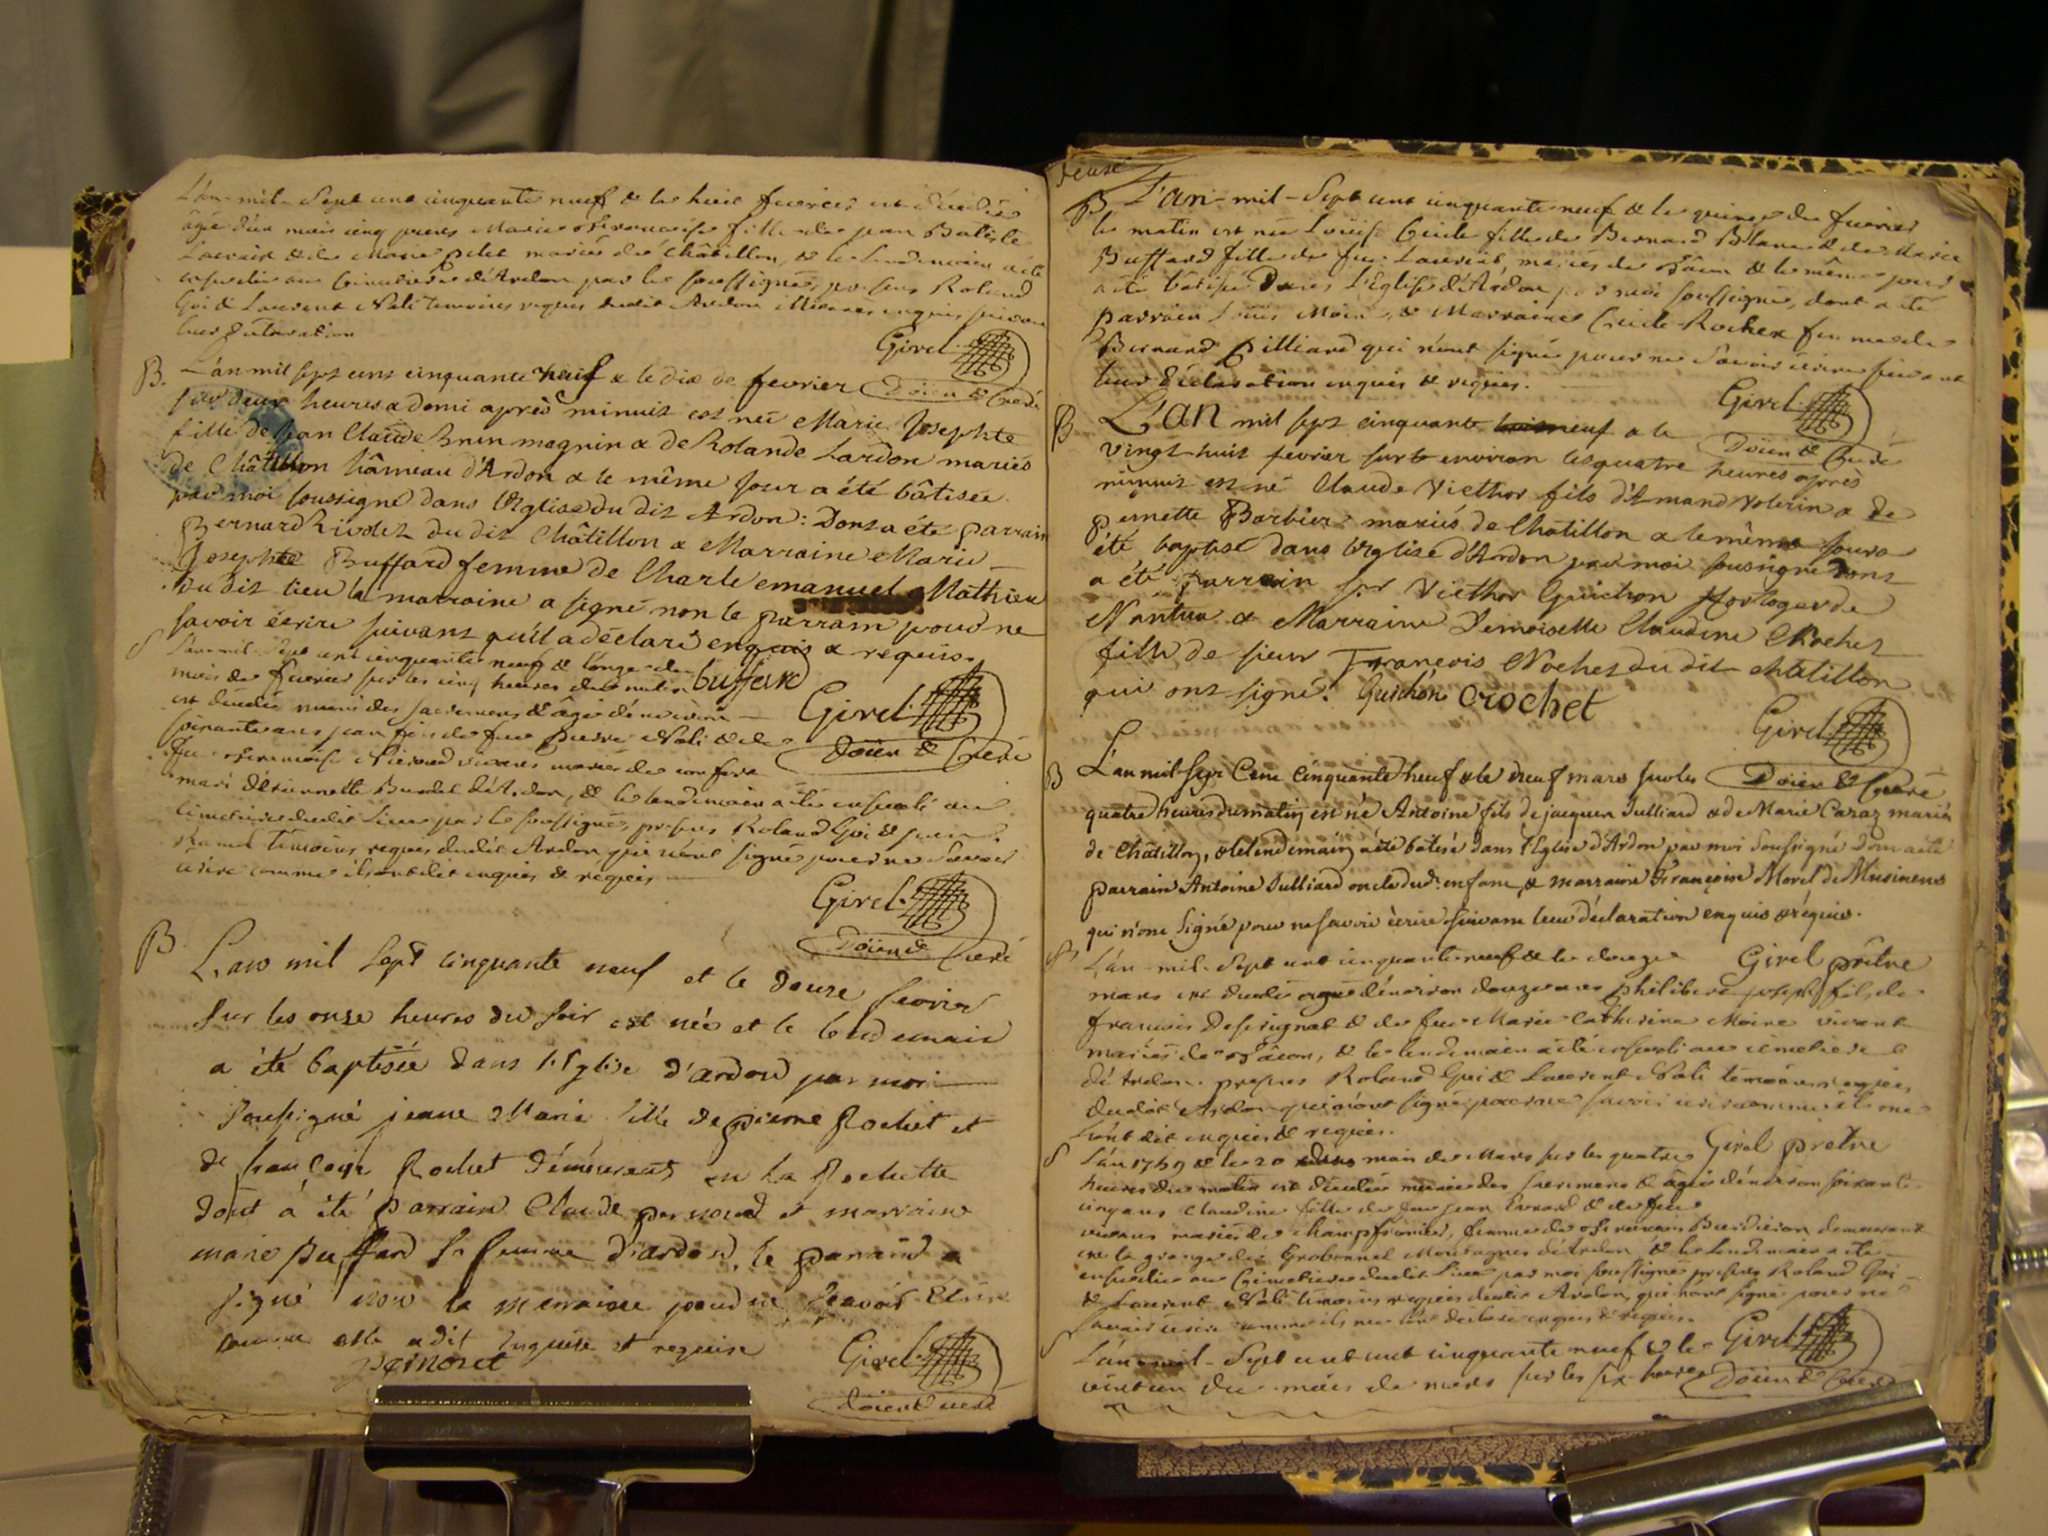 L'an mil Sept cent cinquante neuf & le huit fevrier est décédée
âgée d'un mois cinq jours Marie françoise fille de jean Batiste
& de Marie pelet mariés de Châtillon, & le lendemain a été
au cimetiere d'Ardon par le soussigné, presens Roland
Goi & Laurent Nali temoins requis dudit Ardon illiterés enquis suivant
leur déclaration
Girel
Doïen & Curé
B. L'an mil sept cens cinquante neuf & le dix de fevrier
sur deux heures & demi après minuit est née Marie Josephte
fille de Jean Claude Brun magnin & de Rolande Lardon mariés
de Châtillon hâmeau d'Ardon & le même jour a été bâtisée
par moi soussigné dans l'Eglise du dit Ardon: Dont a été parrain
Bernard Rivolet du dit Châtillon & Marraine Marie
Josephte Buffard femme de Charle emanuel Mathieu
du dit lieu la marraine a signé non le parrain pour ne
savoir écrire suivant qu'il a déclaré enquis & requis.
S L'an mil Sept cent cinquante neuf & l'onze du
mois de fevrier sur les cinq heures du matin buffard
est décédé muni des sacremens & âgé d'environ
soixante ans jean fils de feu pierre Nali & de
feu françoise vivans mariés de
mari d'Etiennette Burdet d'Ardon, & le lendemain a été enseveli au
cimetiere dudit Lieu par le soussigné, presens Roland Goi & jean
temoins requis dudit Ardon, qui n'ont signé pour ne savoir
écrire comme ils ont dit enquis & requis
Girel
Doïen & Curé
Girel
Doïen & Curé
B. L'an mil Sept cinquante neuf et le douze fevrier
sur les onze heures du soir est née et le lendemain
a été baptisée dans l'Eglise d'ardon par moi
soussigné jeanne Marie fille de pierre Rochet et
de françoise Rochet démeurants en la Rochette
dont a été parrain Claude pernoud et marraine
marie Buffard sa femme d'ardon, le parrain a
signé non la marraine pour ne sçavoir écrire
comme elle a dit enquise et requise
pernoret
Girel
Doïen & curé
B L'an mil Sept cent cinquante neuf & le quinze de fevrier
le matin est née Louïse Cecile fille de Bernard Blanc & de Marie
Buffard fille de feu Laurent, mariés de & le même jour
a été bâtisée Dans l'Eglise d'Ardon par moi soussigné, dont a été
parrain Louïs Moine, & Marraine Cecile Rochex femme de
Bernard Billiard qui n'ont signé pour ne savoir écrire suivant
leur déclaration enquis & requis.
Girel
Doïen & Curé
B L'an mil sept cinquante neuf & le
vingt huit fevrier sur environ les quatre heures après
minuit est né Claude Victhor fils d'Amand Volerin & de
pernette Barbier mariés de Chatillon & le même jour a
été baptisé dans l'Eglise d'Ardon par moi soussigné Dont
a été parrain sr Victhor Guichon Horloger de
Nantua & Marraine Demoiselle Claudine Rochet
fille de sieur François Rochet du dit chatillon
qui ont signé. Guichon Crochet
Girel
Doïen & Curé
B L'an mil Sept Cent Cinquante neuf & le neuf mars sur les
quatre heures du matin est né Antoine fils de jacques Julliard & de Marie Caraz mariés
de Châtillon, & le lendemain a été bâtisé dans l'Eglise d'Ardon par moi Soussigné dont a été
parrain Antoine Julliard oncle dud. enfant, & marraine Françoise Morel de Musinens
qui n'ont Signé pour ne savoir ècrire suivant leur déclaration enquis & réquis.
Girel prêtre
S L'an mil Sept cent cinquante neuf & le douze
mars est décédé agé d'environ douze ans philibert joseph fils de
françois & de feu Marie Catherine Moine vivant
mariés de & le lendemain a été enseveli au cimetiere
d'Ardon presens Roland Goi & Laurent Nali temoins requis
dudit Ardon qui n'ont signé pour ne savoir écrire comme ils
l'ont dit enquis & requis.
Girel prêtre
S L'an 1759 & le 20 du mois de Mars sur les quatre
heures du matin est décédée munie des sacremens & âgée d'environ soixante
cinq ans Claudine fille de feu jean & de feu
vivans mariés de Champfromier, femme de françois demeurant
en la grange du Montagnes d'Ardon, & le lendemain a été
ensevelie au Cimetiere dudit Lieu par moi soussigné presens Roland Goi
& Laurent Nali temoins requis dudit Ardon, qui n'ont signé pour ne
savoir écrire comme ils me l'ont déclaré enquis & requis.
Girel
Doïen & Curé
S L'an mil Sept cent cinquante neuf & le
vint un du mois de mars sur les six heures